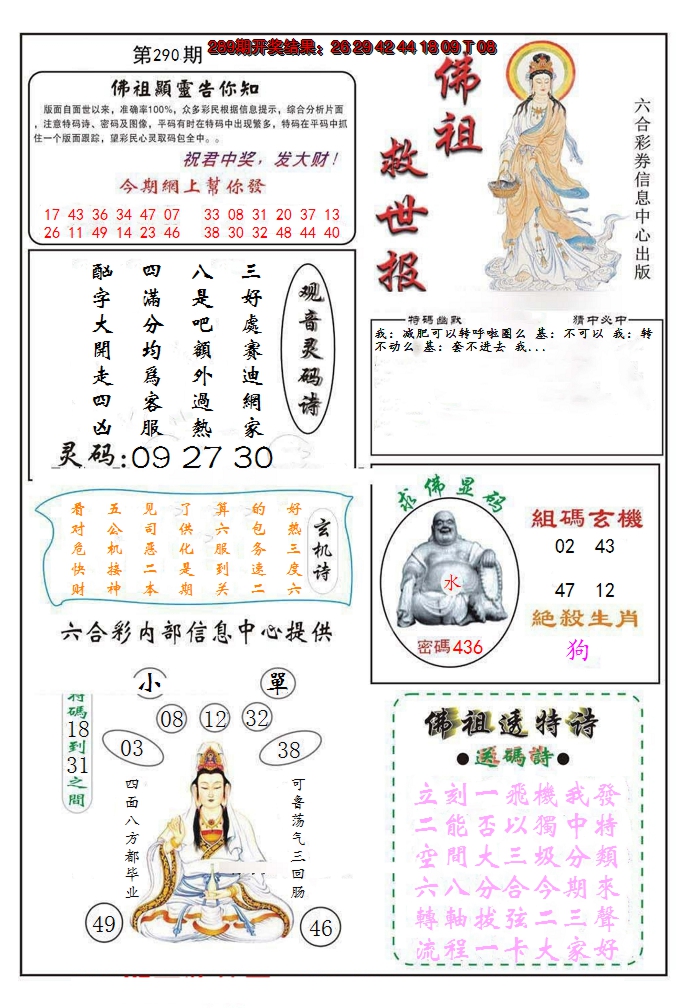 第290期
289期开奖结果：26 29 42 44 18 09 T 08
佛祖顯靈告你知
版面自面世以来，准确率100%，众多彩民根据信息提示，综合分析片面
，注意特码诗、密码及图像，平码有时在特码中出现繁多，特码在平码中抓
住一个版面跟踪，望彩民心灵取码包全中。。
祝君中奖，发大财！
今期網上幫你發
17 43 36 34 47 07 33 08 31 20 37 13
26 11 49 14 23 46 38 30 32 48 44 40
佛祖
救世报
六合彩券信息中心出版
观音灵码诗
三好處賽迪網家
八是吧額外過熱
四滿分均爲客服
酗字大開走四凶
灵码:09 27 30
特碼幽默
猜中必中
我：减肥可以转呼啦圈么 基：不可以 我：转
不动么 基：套不进去 我...
玄机诗
看五见了算的好
对公司供六包热
危机恶化服务三
快接二是到速度
财神本期关二六
六合彩内部信息中心提供
求佛显码
水
密碼436
組碼玄機
02 43
47 12
絕殺生肖
狗
小
單
特碼18到31之間
08
12
32
03
38
四面八方都毕业
可鲁荡气三回肠
49
46
佛祖透特诗
●送碼詩●
立刻一飛機我發
二能否以獨中特
空間大三圾分類
六八分合今期來
轉軸拔弦二三聲
流程一卡大家好